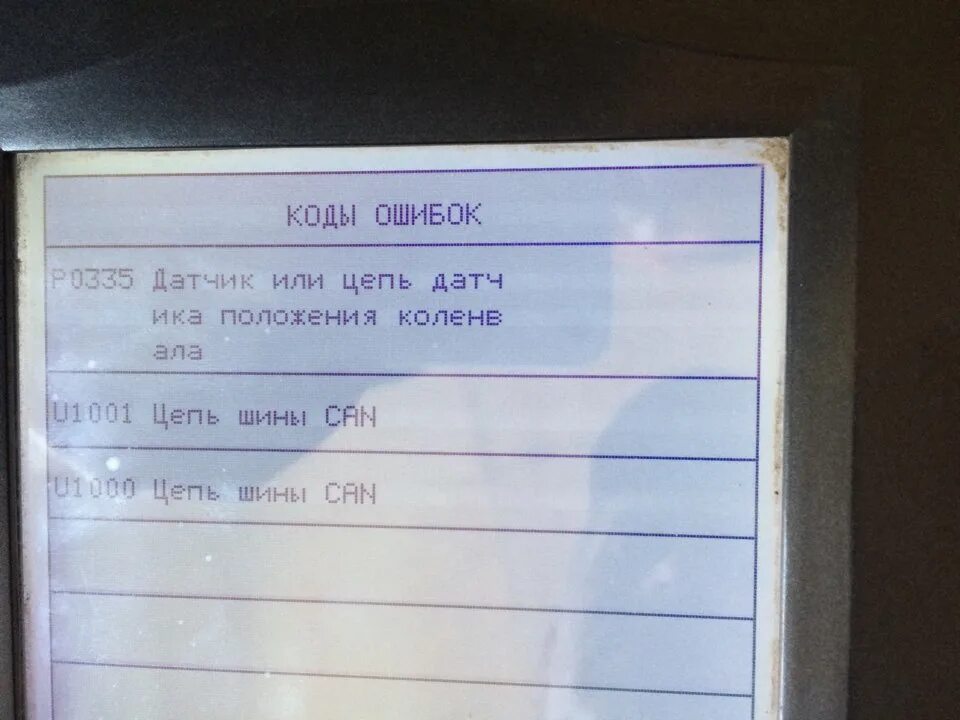 КОДЫ ОШИБОК
P0335 Датчик или цепь датч
ика положения коленв
ала
U1001 Цепь шины CAN
U1000 Цепь шины CAN